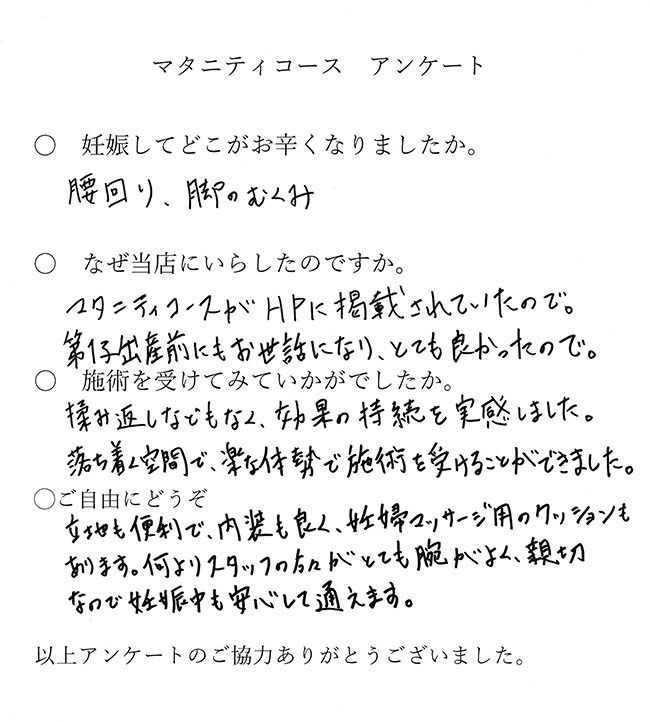 マタニティコース　アンケート
○　妊娠してどこがお辛くなりましたか。
腰回り、脚のむくみ
○　なぜ当店にいらしたのですか。
マタニティコースがHPに掲載されていたので。
第1子出産前にもお世話になり、とても良かったので。
○　施術を受けてみていかがでしたか。
揉み返しなどもなく、効果の持続を実感しました。
落ち着く空間で、楽な体勢で施術を受けることができました。
○ご自由にどうぞ
立地も便利で、内装も良く、妊婦マッサージ用のクッションも
あります。何よりスタッフの方々がとても腕がよく、親切
なので妊娠中も安心して通えます。
以上アンケートのご協力ありがとうございました。